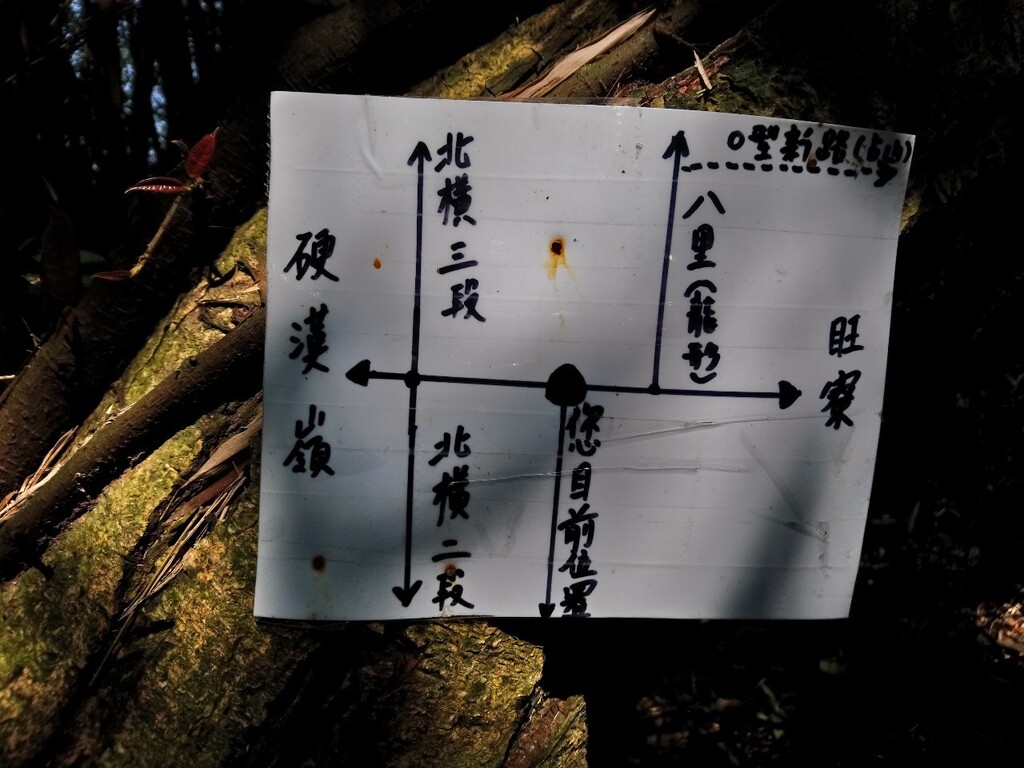 硬漢嶺
北橫三段
北橫二段
您目前位置
八里(龍形)
O型新路(占山)
旺寮